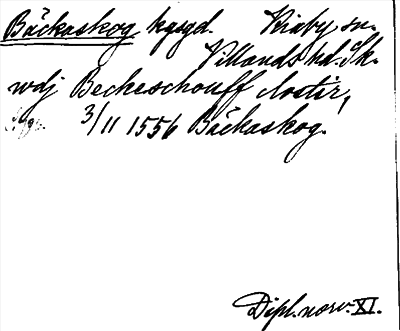 Bäckaskog kgsgd. Kiaby sn.
Villands hd. Sk.
wdj Beckeschouff closter,
3/11 1556 Bäckaskog.
Dipl. norv. XI.